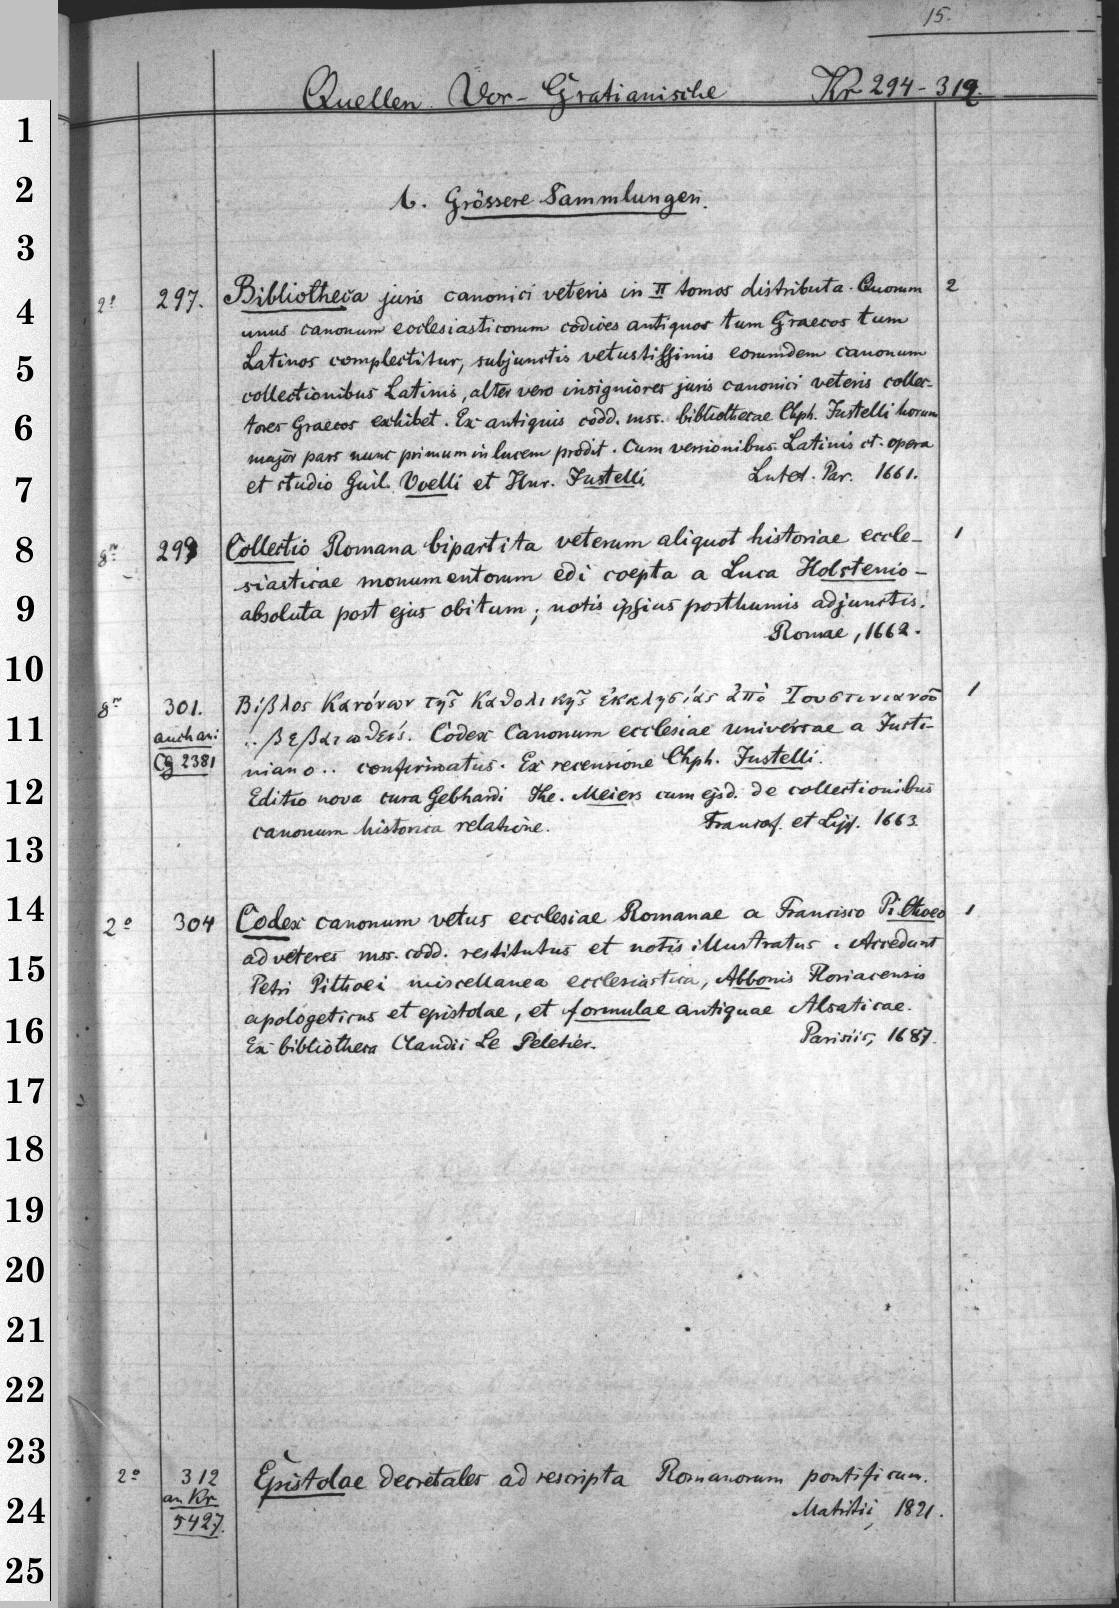 15.
Quellen Vor-Gratianische Kr 294-319.
b. Grössere Sammlungen.
2° 297. Bibliotheca juris canonici veteris in II tomos distributa. Quorum 2
unus canonum ecclesiasticorum codices antiquos tum Graecos tum
Latinos complectitur, subjunctis vetustissimis eorumdem canonum
collectionibus Latinis, alter vero insigniores juris canonici veteris collec-
tores Graecos exhibet. Ex antiquis codd. mss. bibliothecae Chph. Justelli horum
major pars nunc primum in lucem prodit. Cum versionibus Latinis et opera
et studio Guil. Voelli et Hnr. Justelli. Lutet. Par. 1661.
8° 299 Collectio Romana bipartita veterum aliquot historiae eccle- 1
siasticae monumentorum edi coepta a Luca Holstenio -
absoluta post ejus obitum; notis ipsius posthumis adjunctis.
Romae, 1662.
8° 301. Βίβλος Κανόνων τῆς Καθολικῆς ἐκκλησίας ἀπὸ Ἰουστινιανοῦ 1
auch an: .. βεβαιωθείς. Codex Canonum ecclesiae universae a Justi-
Cg 2381 niano .. confirmatus. Ex recensione Chph. Justelli.
Editio nova cura Gebhardi The. Meiers cum ejsd. de collectionibus
canonum historica relatione. Francof. et Lips. 1663
2° 304 Codex canonum vetus ecclesiae Romanae a Francisco Pithoeo 1
ad veteres mss. codd. restitutus et notis illustratus. Accedunt
Petri Pithoei miscellanea ecclesiastica, Abbonis Floriacensis
apologeticus et epistolae, et formulae antiquae Alsaticae.
Ex bibliotheca Claudii Le Peletier. Parisiis, 1687.
2° 312 Epistolae decretales ad rescripta Romanorum pontificum.
an Kr Matriti, 1821.
5427.
1
2
3
4
5
6
7
8
9
10
11
12
13
14
15
16
17
18
19
20
21
22
23
24
25